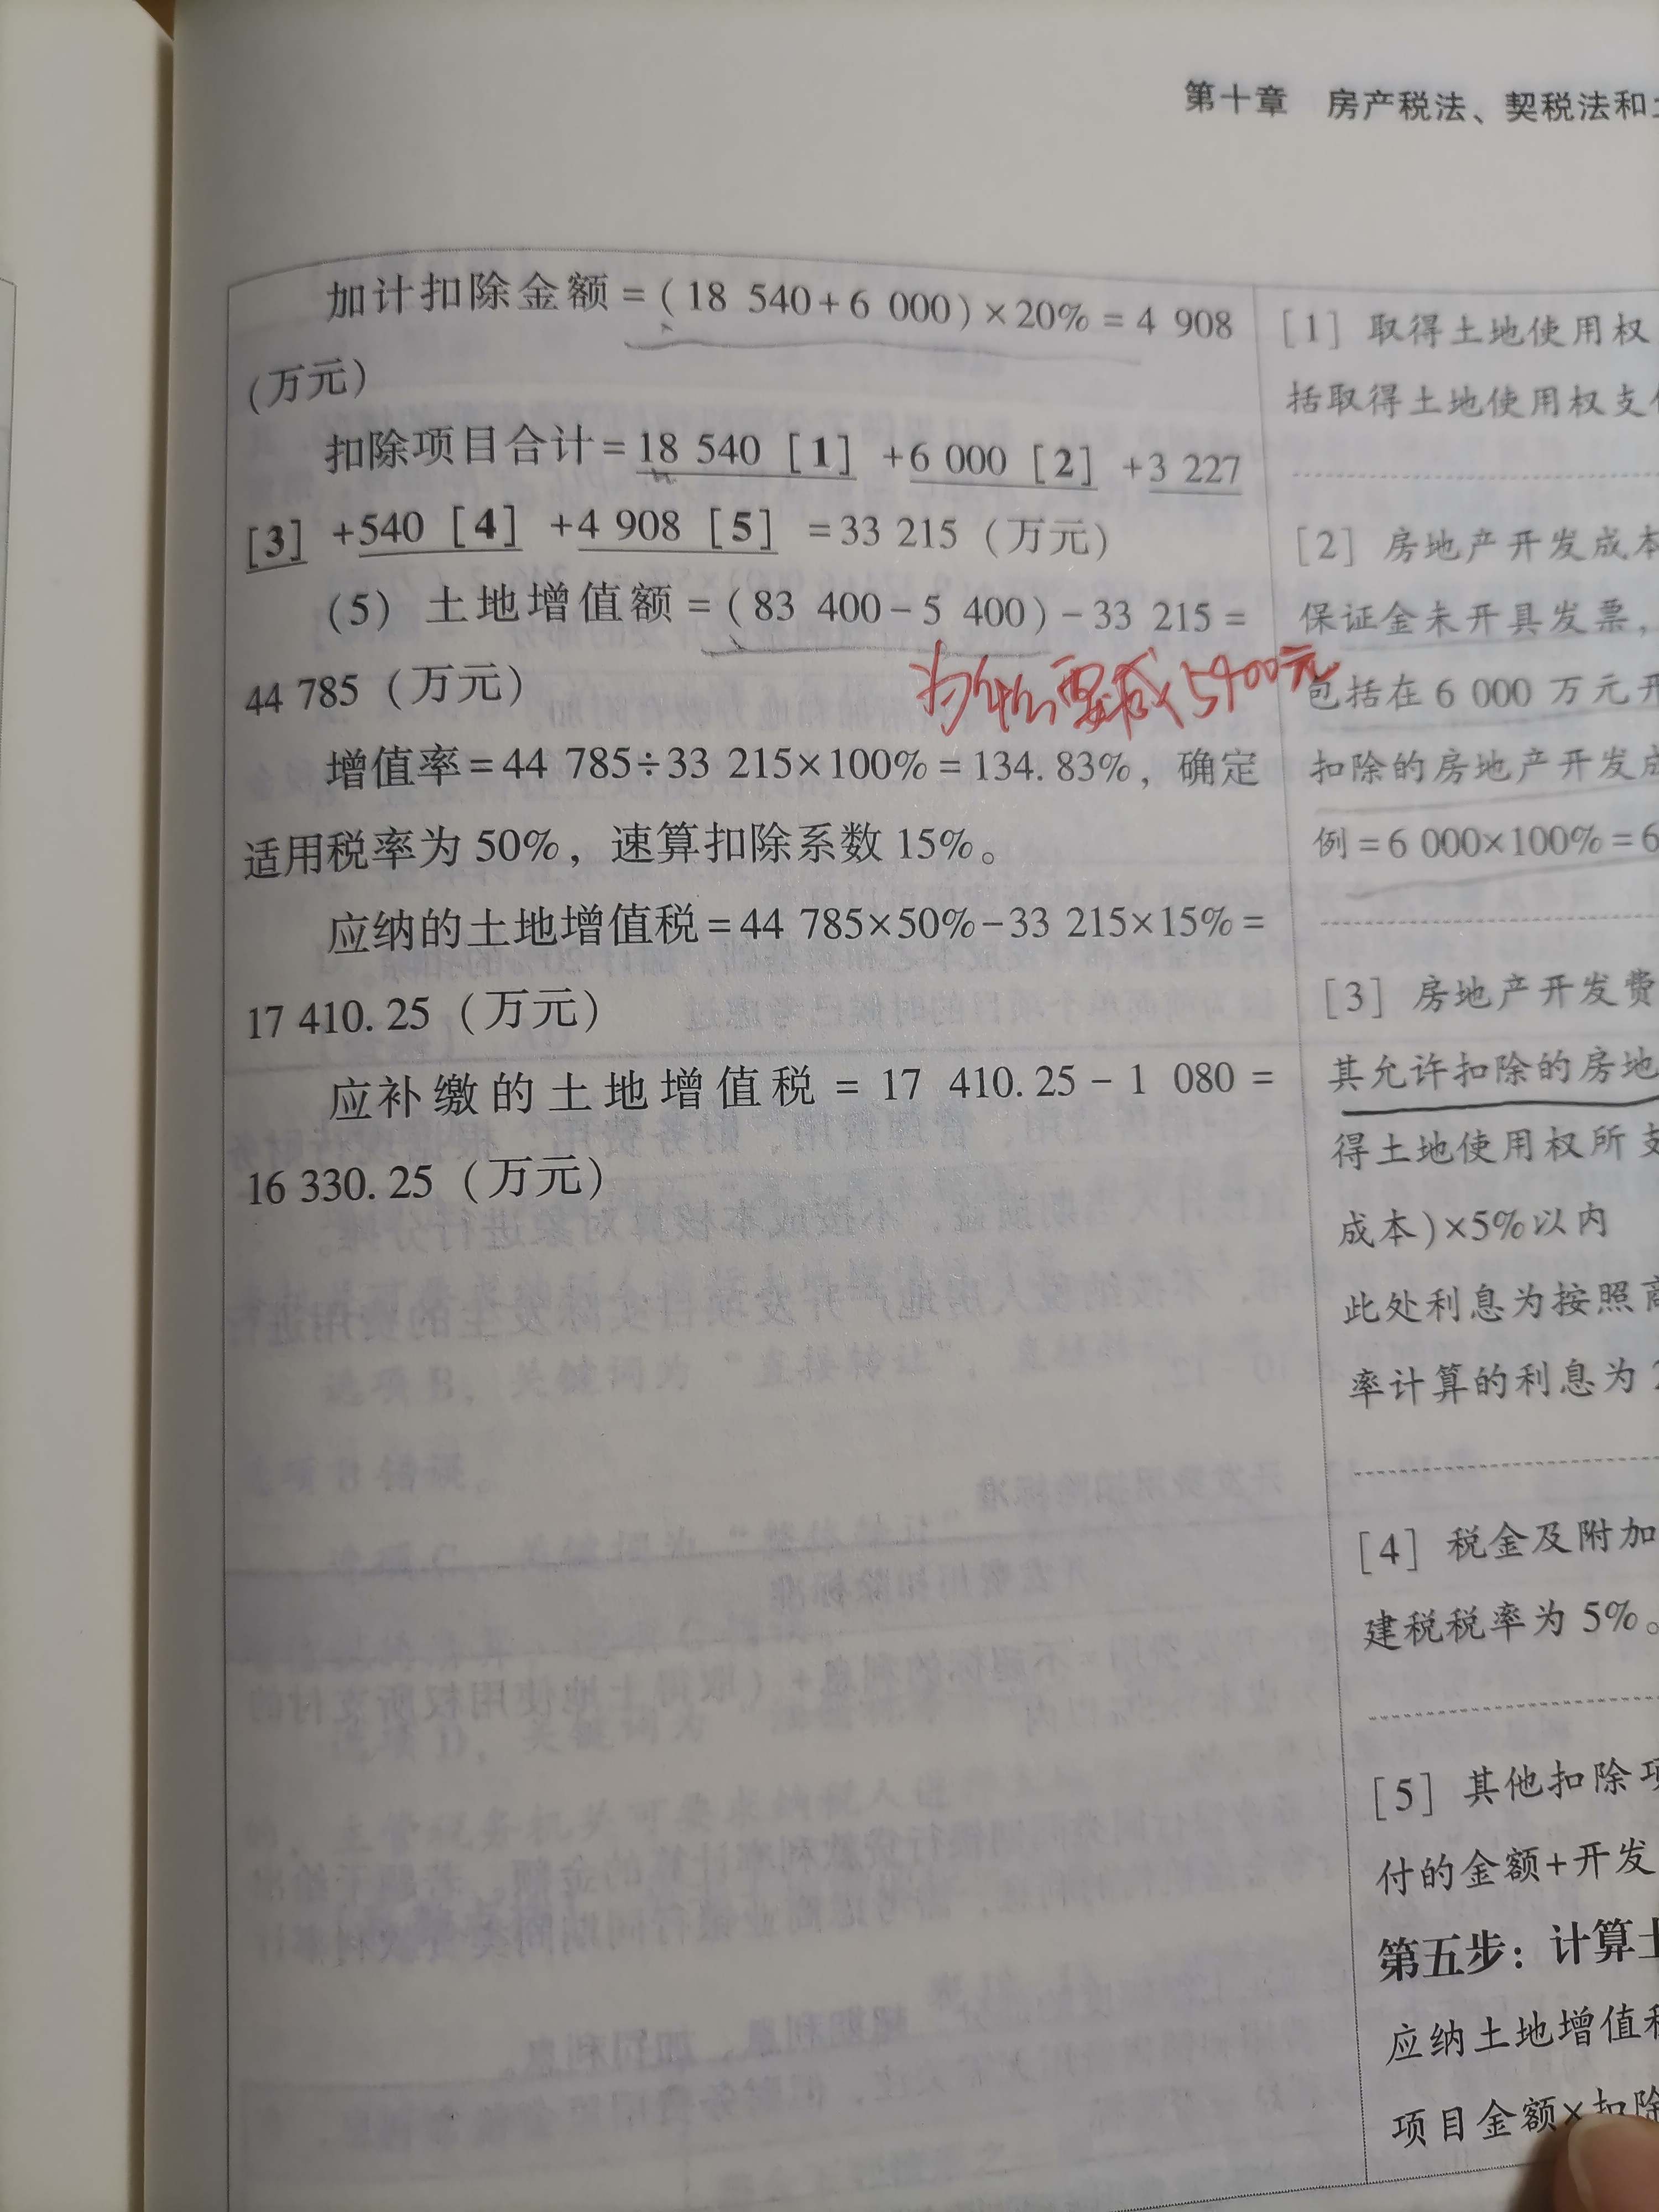 第十章 房产税法、契税法和
加计扣除金额=(18 540+6 000)×20%=4 908
(万元)
扣除项目合计=18 540 [1] +6 000 [2] +3 227
[3] +540 [4] +4 908 [5] =33 215 (万元)
(5) 土地增值额=(83 400-5 400)-33 215=
44 785 (万元)
为什么需要减5400元
增值率=44 785÷33 215×100%=134.83%, 确定
适用税率为50%, 速算扣除系数15%。
应纳的土地增值税=44 785×50%-33 215×15%=
17 410.25 (万元)
应补缴的土地增值税=17 410.25-1 080=
16 330.25 (万元)
[1] 取得土地使用权
括取得土地使用权支
[2] 房地产开发成本
保证金未开具发票,
包括在6 000万元开
扣除的房地产开发成
例=6 000×100%=6
[3] 房地产开发费
其允许扣除的房地
得土地使用权所支
成本)×5%以内
此处利息为按照商
率计算的利息为
[4] 税金及附加
建税税率为5%。
[5] 其他扣除项
付的金额+开发
第五步: 计算土
应纳土地增值税
项目金额×扣除